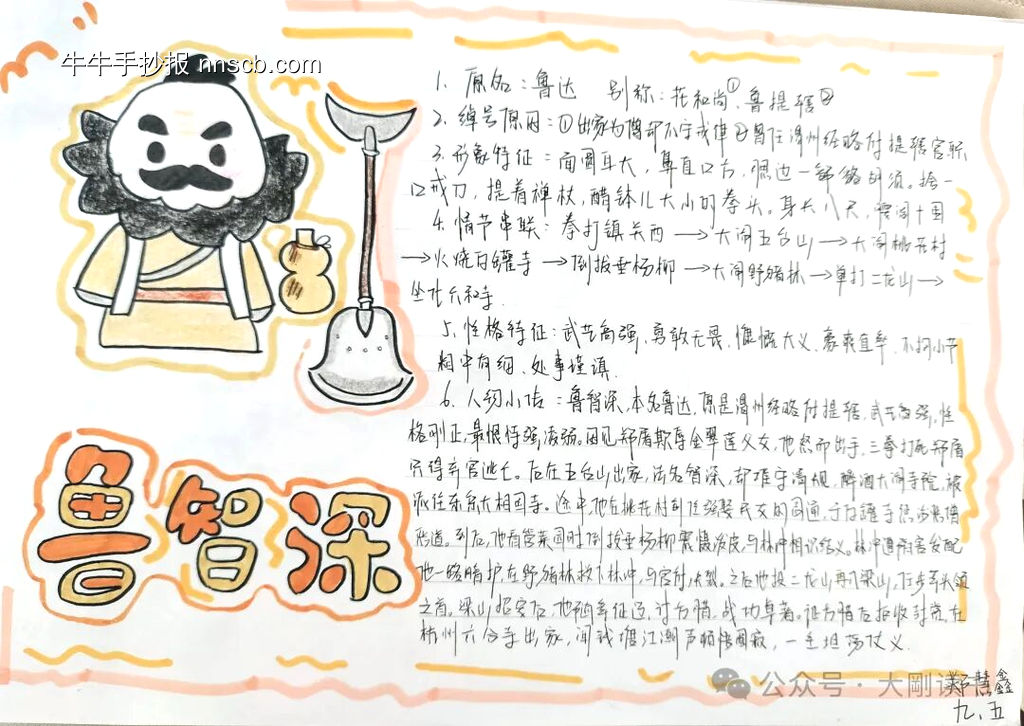 牛牛手抄报 nnscb.com
1. 原名：鲁达 别称：花和尚①、鲁提辖②
2. 绰号原因：①出家为僧却不守戒律②曾任渭州经略付提辖官职
3. 形象特征：面圆耳大，鼻直口方，腮边一部络胡须。拾一
口戒刀，提着禅杖，醋钵儿大小的拳头。身长八尺，腰阔十围
4. 情节串联：拳打镇关西→大闹五台山→大闹桃花村
→火烧瓦罐寺→倒拔垂杨柳→大闹野猪林→单打二龙山→
坐化六和寺
5. 性格特征：武艺高强，勇敢无畏，慷慨大义、豪爽直率，不拘小节
粗中有细，处事谨慎
6. 人物小传：鲁智深，本名鲁达，原是渭州经略付提辖，武艺高强，性
格刚正，最恨恃强凌弱。因见郑屠欺辱金翠莲父女，他怒而出手，三拳打死郑屠
不得弃官逃亡。后在五台山出家，法名智深，却难守清规，醉酒大闹寺院，被
派往东京大相国寺。途中，他在桃花村
到后，他看管菜园时倒拔垂杨柳震慑泼皮，与林冲相识结义。林冲遭陷害发配
他一路暗护，在野猪林救下林冲，与官府决裂。之后他投二龙山，再入梁山，任步军头领
之首。梁山招安后，他随军征辽、讨方腊，战功卓著。征方腊后拒收封赏，在
杭州六合寺出家，闻钱塘江潮声顿悟圆寂，一生坦荡仗义。
鲁智深
公众号·大刚
郑慧鑫
九、五